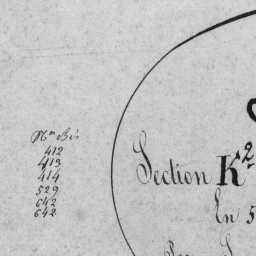 Nos Bis
412
413
414
529
642
642
Section K²
En 5